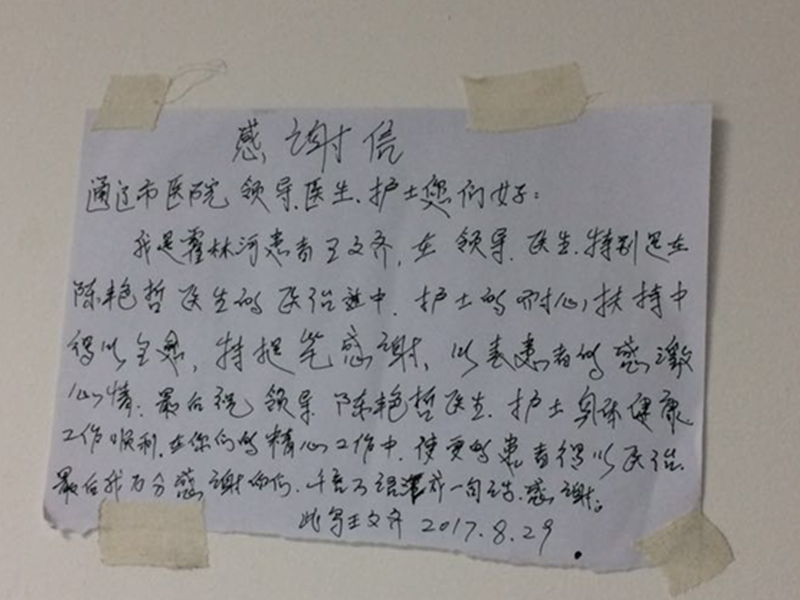 感谢信
通辽市医院领导.医生.护士您们好:
我是霍林河患者王文齐,在领导.医生.特别是在
陈艳哲医生的医治过中.护士的耐心扶持中
得以全愈,特提笔感谢,以表患者的感激
心情.最后祝领导.陈艳哲医生.护士身体健康
工作顺利.在你们的精心工作中.使更多患者得以医治.
最后我万分感谢你们.千言万语汇成一句话.感谢。
此写王文齐 2017.8.29